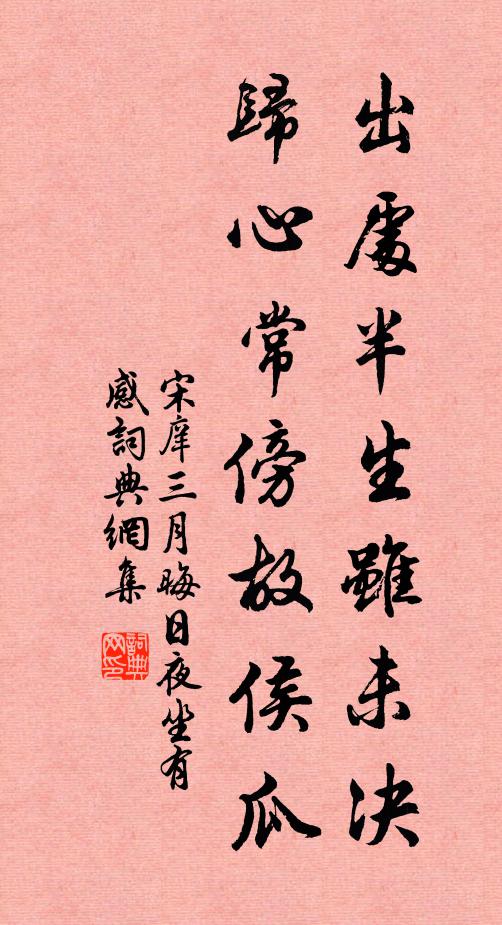 出處半生雖未決
歸心常傍故侯瓜
宋庠三月晦日夜坐有
感詞典網集
詞典
网印